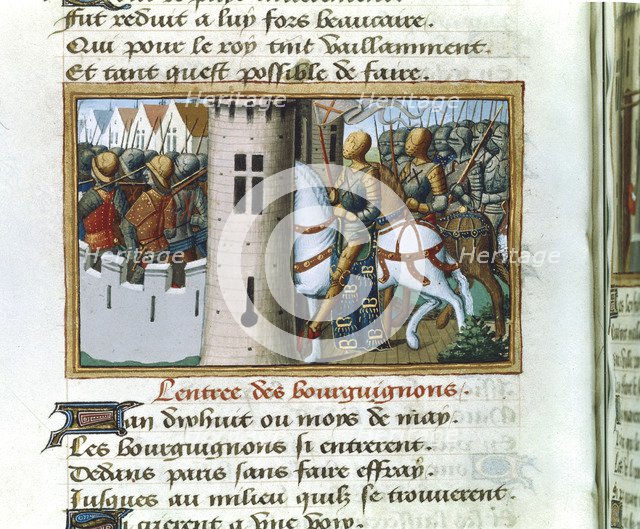 fut reduit a luy fors beaucaire.
Qui pour le roy tint vaillamment.
Et tant quest possible de faire.
Lentree des bourguignons.
Lan dixhuit ou moys de may.
Les bourguignons si entrerent.
Dedans paris sans faire effray.
Jusques au milieu quilz se trouverent.
a vne voix
Heritage
Heritage
Heritage
Heritage
Heritage
Heritage